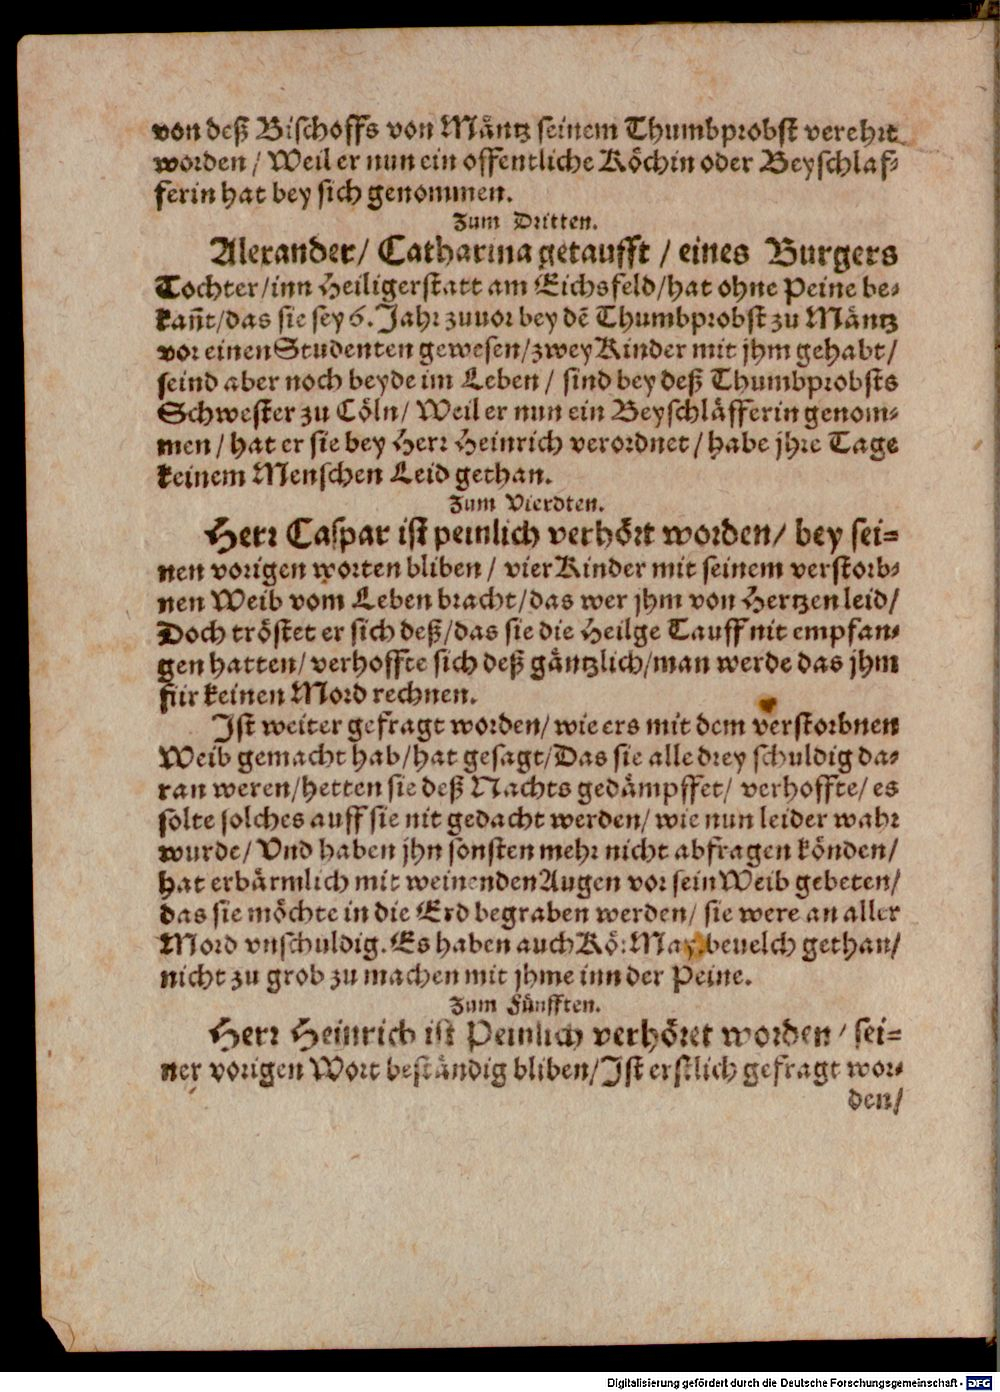 von deß Bischoffs von Mäntz seinem Thumbprobst verehrt
worden / Weil er nun ein offentliche Köchin oder Beyschlaf-
ferin hat bey sich genommen.
Zum Dritten.
Alexander/ Catharina getaufft / eines Burgers
Tochter/inn Heiligerstatt am Eichsfeld/hat ohne Peine be-
kañt/das sie sey 6. Jahr zuuor bey dẽ Thumbprobst zu Mäntz
vor einen Studenten gewesen/zwey Kinder mit jhm gehabt/
seind aber noch beyde im Leben / sind bey deß Thumbprobsts
Schwester zu Cöln/ Weil er nun ein Beyschläfferin genom-
men / hat er sie bey Herr Heinrich verordnet / habe jhre Tage
keinem Menschen Leid gethan.
Zum Vierdten.
Herr Caspar ist peinlich verhört worden/ bey sei-
nen vorigen worten bliben / vier Kinder mit seinem verstorb-
nen Weib vom Leben bracht/das wer jhm von Hertzen leid/
Doch tröstet er sich deß/das sie die Heilge Tauff nit empfan-
gen hatten/ verhoffte sich deß gäntzlich/man werde das jhm
für keinen Mord rechnen.
Ist weiter gefragt worden/ wie ers mit dem verstorbnen
Weib gemacht hab/hat gesagt/Das sie alle drey schuldig da-
ran weren/hetten sie deß Nachts gedämpffet/ verhoffte/ es
solte solches auff sie nit gedacht werden/ wie nun leider wahr
wurde/ Vnd haben jhn sonsten mehr nicht abfragen könden/
hat erbärmlich mit weinenden Augen vor sein Weib gebeten/
das sie möchte in die Erd begraben werden/ sie were an aller
Mord vnschuldig. Es haben auch Kö: May. beuelch gethan/
nicht zu grob zu machen mit jhme inn der Peine.
Zum Fünfften.
Herr Heinrich ist Peinlich verhöret worden / sei-
ner vorigen Wort beständig bliben/Ist erstlich gefragt wor-
den/
Digitalisierung gefördert durch die Deutsche Forschungsgemeinschaft - DFG